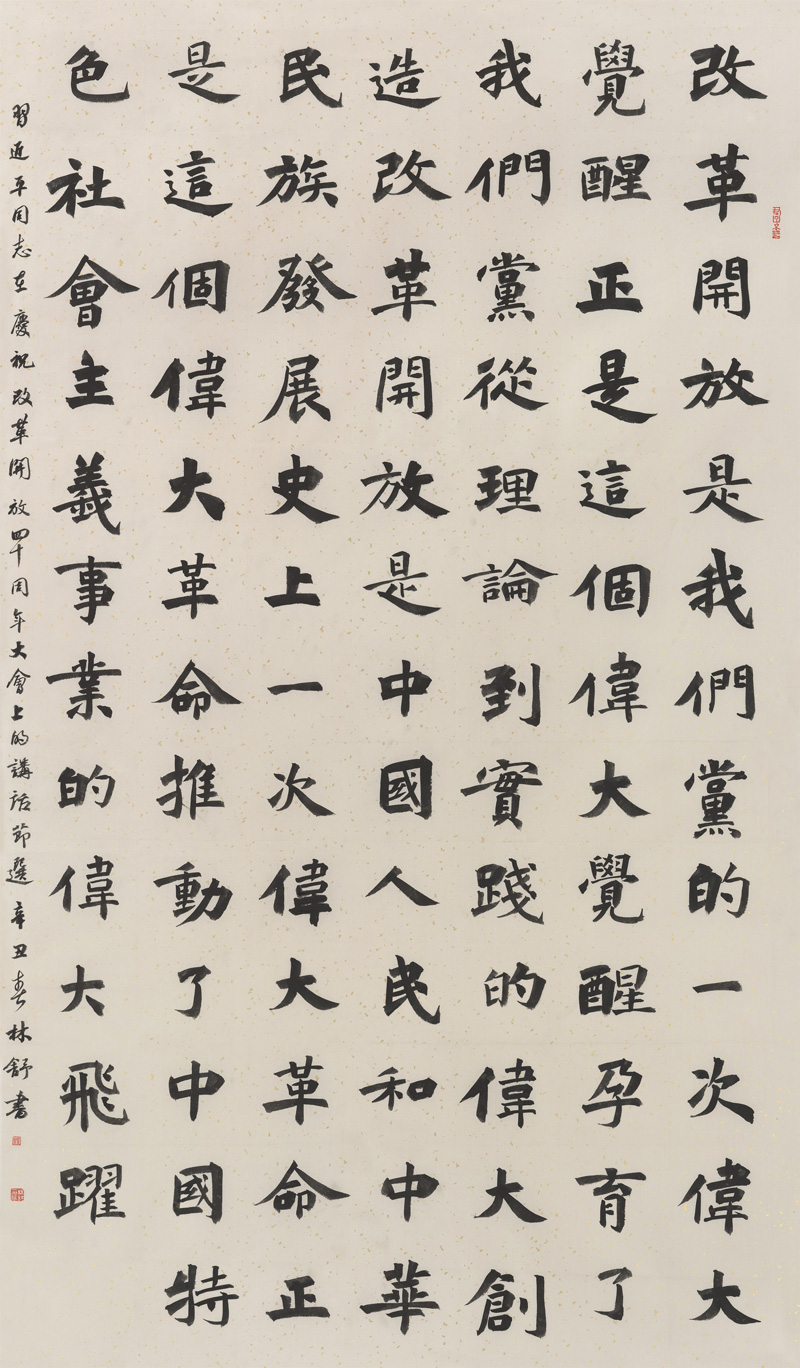 改革開放是我們黨的一次偉大
覺醒正是這個偉大覺醒孕育了
我們黨從理論到實踐的偉大創
造改革開放是中國人民和中華
民族發展史上一次偉大革命正
是這個偉大革命推動了中國特
色社會主義事業的偉大飛躍
習近平同志在慶祝改革開放四十周年大會上的講話節選 辛丑春林舒書